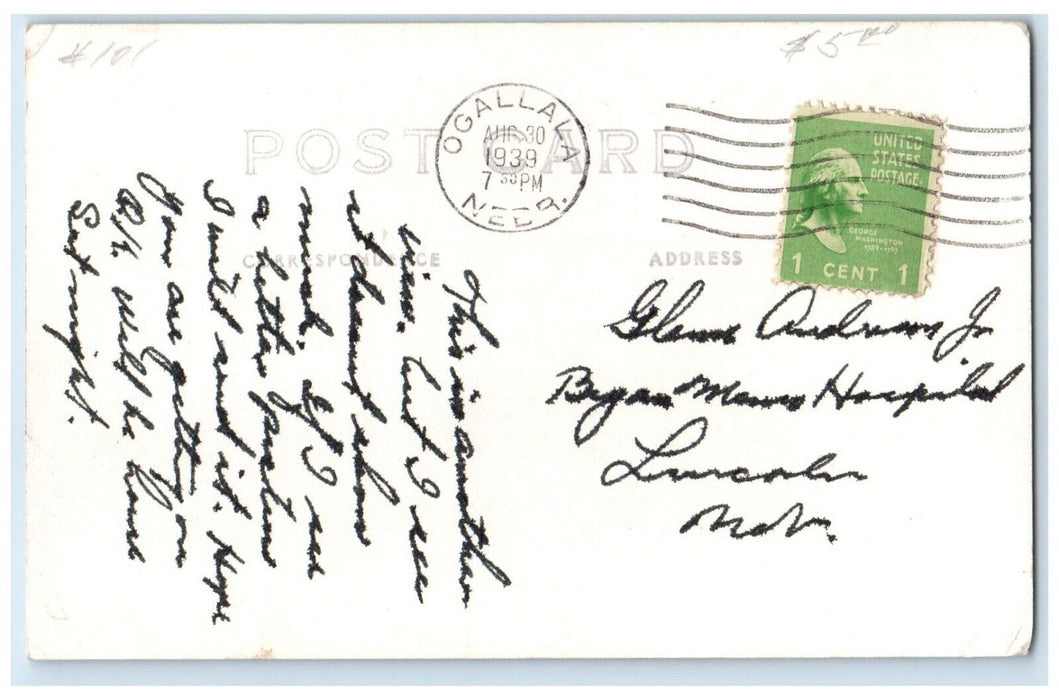 #101
$5.00
POST CARD
OGALLALA
AUG 30
1939
7 30 PM
NEBR.
UNITED
STATES
POSTAGE
GEORGE
WASHINGTON
1789-1797
1 CENT 1
CORRESPONDENCE
ADDRESS
This is another
view. but I see
it doesnt show
much. If I see
a better picture
I will send it. Hope
you are getting on
O.K. Will be home
Sat night.
Glenn Andrews Jr
Bryan Hospital
Lincoln
Neb.